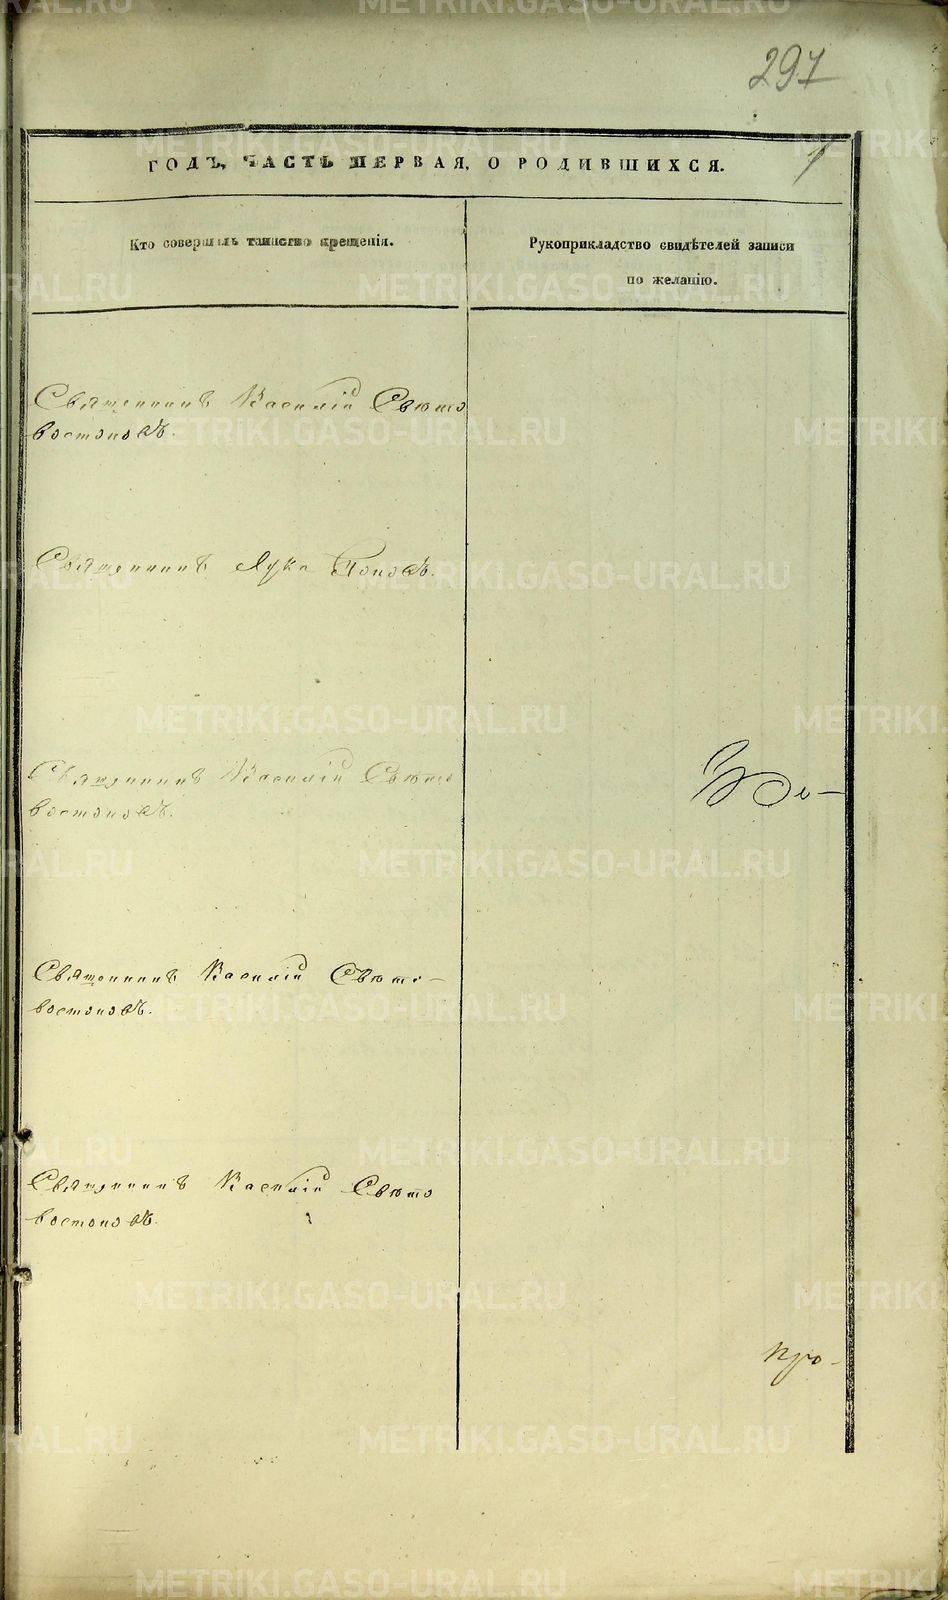 297
ГОДЪ, ЧАСТЬ ПЕРВАЯ, О РОДИВШИХСЯ.
Кто совершилъ таинство крещенія.
Рукоприкладство свидѣтелей записи
по желанію.
Священникъ Василій Свѣто
востоковъ.
Священникъ Лука Поповъ.
Священникъ Василій Свѣто
востоковъ.
Священникъ Василій Свѣто-
востоковъ.
Священникъ Василій Свѣто
востоковъ.
METRIKI.GASO-URAL.RU